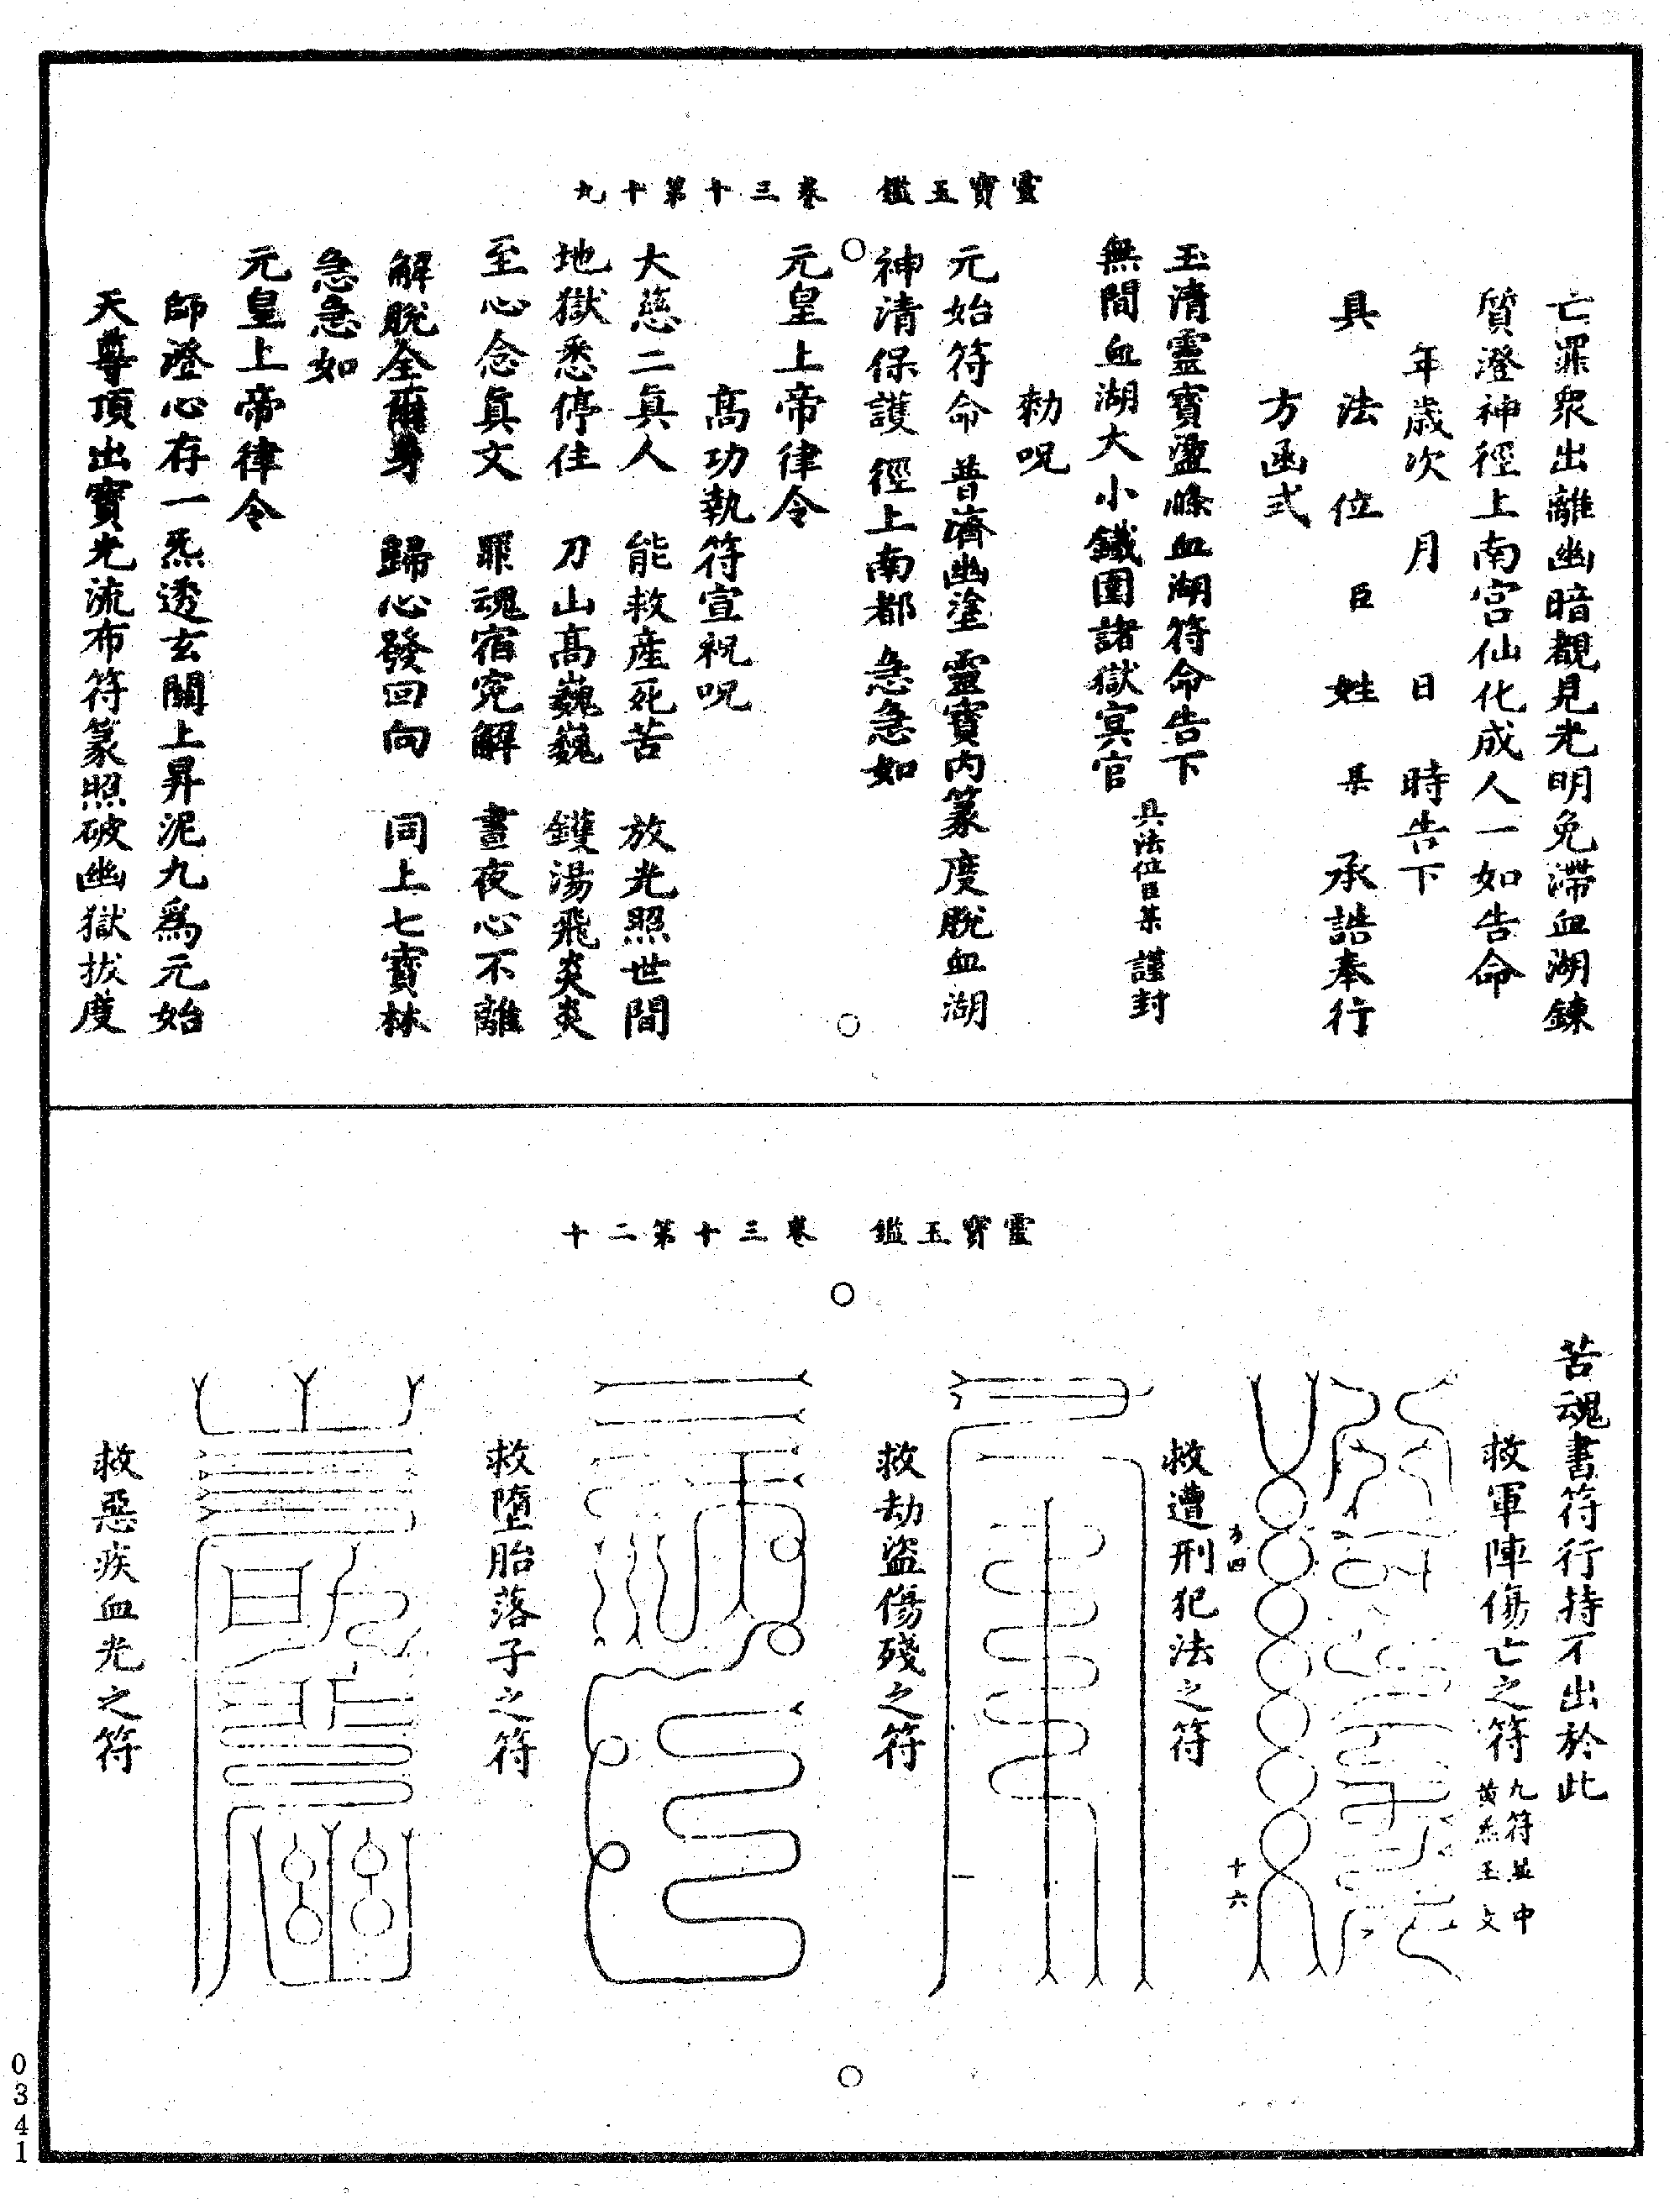 靈寶玉鑑　卷三十第十九
亡罪衆出離幽暗覩見光明免滯血湖鍊
質澄神徑上南宮仙化成人一如告命
年歲次　月　日　時告下
具　法　位　臣　姓　某　承誥奉行
方函式
玉清靈寶盪滌血湖符命告下
無間血湖大小鐵圍諸獄冥官　具法位臣某　謹封
勑呪
元始符命　普濟幽塗　靈寶内篆　度脫血湖
神清保護　徑上南都　急急如
元皇上帝律令
高功執符宣祝呪
大慈二真人　能救產死苦　放光照世間
地獄悉停住　刀山髙巍巍　鑊湯飛炎炎
至心念真文　罪魂宿寃解　晝夜心不離
解脫全爾身　歸心發回向　同上七寶林
急急如
元皇上帝律令
師澄心存一炁透玄關上昇泥九爲元始
天尊頂出寶光流布符篆照破幽獄拔度
靈寶玉鑑　卷三十第二十
苦魂書符行持不出於此
救軍陣傷亡之符　九符並中
黄炁玉文
方四
十六
救遭刑犯法之符
救劫盜傷殘之符
救墮胎落子之符
救惡疾血光之符
0341